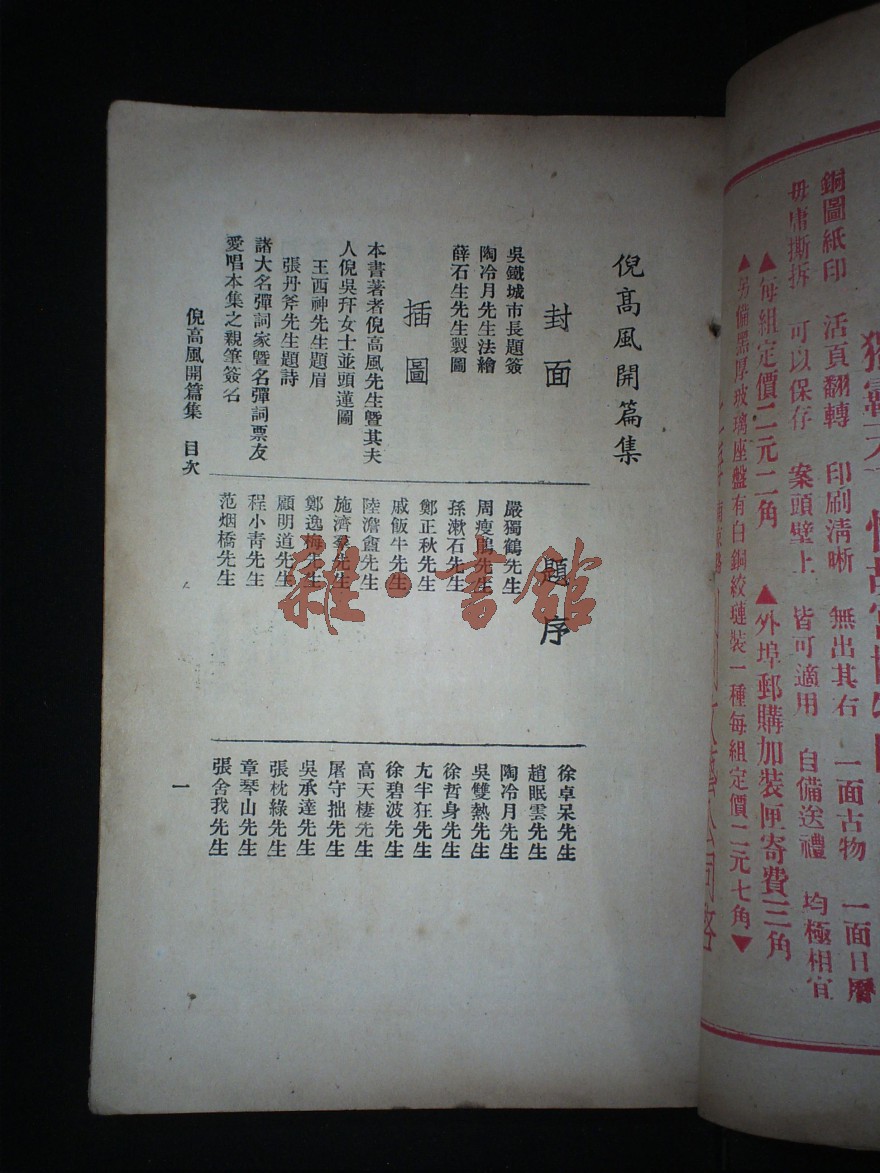 倪高風開篇集
封面
吳鐵城市長題簽
陶冷月先生法繪
薛石生先生製圖
插圖
本書著者倪高風先生暨其夫
人倪吳玕女士並頭蓮圖
王西神先生題眉
張丹斧先生題詩
諸大名彈詞家暨名彈詞票友
愛唱本集之親筆簽名
題序
嚴獨鶴先生
周瘦鵑先生
孫漱石先生
鄭正秋先生
戚飯牛先生
陸澹盦先生
施濟羣先生
鄭逸梅先生
顧明道先生
程小青先生
范烟橋先生
徐卓呆先生
趙眠雲先生
陶冷月先生
吳雙熱先生
徐哲身先生
尢半狂先生
徐碧波先生
高天棲先生
屠守拙先生
吳承達先生
張枕綠先生
章琴山先生
張舍我先生
倪高風開篇集 目次
一
雜·書館
銅圖紙印 活頁翻轉 印刷清晰 無出其右 一面古物 一面日曆
毋庸撕拆 可以保存 案頭壁上 皆可適用 自備送禮 均極相宜
▲每組定價二元二角 ▲外埠郵購加裝匣寄費三角
▲另備黑厚玻璃座盤有白銅絞鏈裝一種每組定價二元七角▼